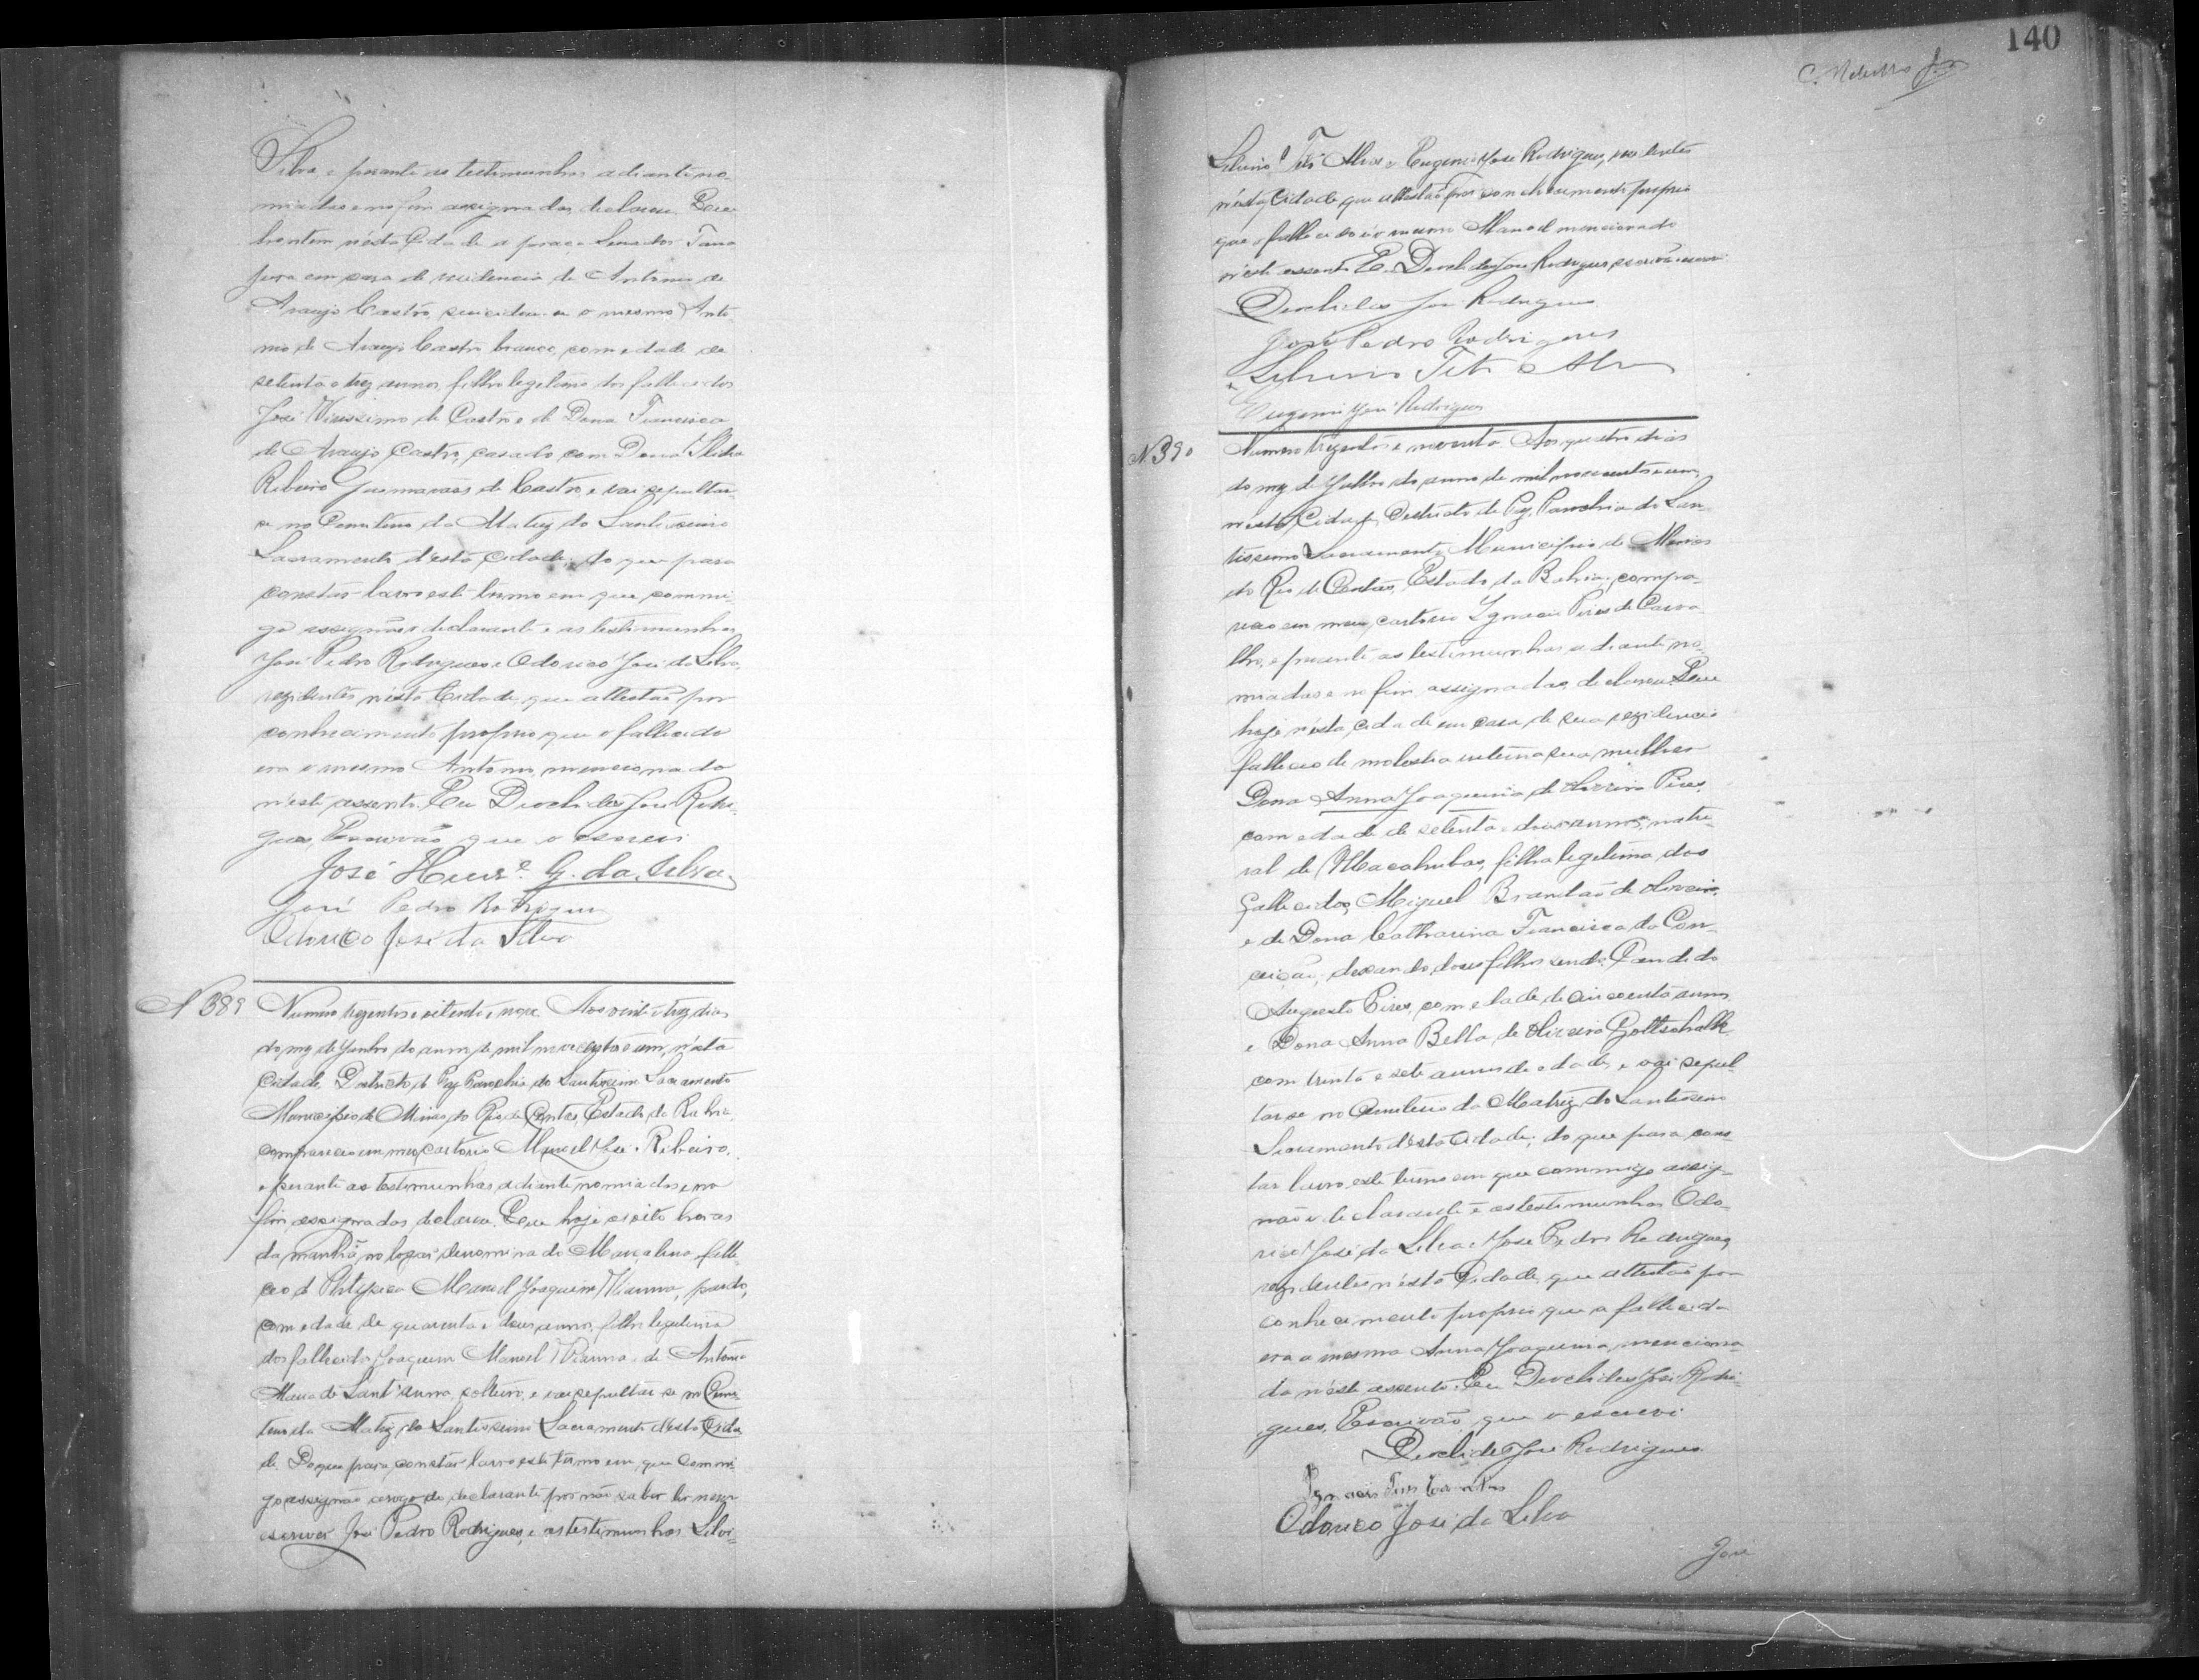 Silva e perante as testimunhas adiante no-
miadas e no fim assignadas, declarou Que
hontem nésta Cidade a praça Senador Tana
jura em casa de residencia de Antonio de
Araujo Castro, suicidou-se o mesmo Anto
nio de Araujo Castro branco, com edade de
setenta e trez annos, filho legitimo dos fallecidos
José Virissimo de Castro e de Dona Francisca
de Araujo Castro, casado com Dona
Ribeiro Guimarães de Castro, e vai sepultar-
se no Cemiterio da Matriz do Santissimo
Sacramento d'esta Cidade; do que para
constar lavro este termo em que commi-
go assignão o declarante e as testimunhas
José Pedro Rodrigues e Odorico José da Silva,
rezidentes nésta Cidade, que attestão por
conhecimento proprio que o fallecido
era o mesmo Antonio mencionado
n'este assento. Eu Dioclides José Rodri-
gues, Escrivão que o escrevi
José Henr.e G. da Silva
José Pedro Rodrigues
Odorico José da Silva
N 389 Numero trezentos e oitenta e nove. Aos vinte e trez dias
do mez de Junho do anno de mil novecentos e um, n'esta
Cidade, Districto de Paz, Parochia do Santissimo Sacramento
Municipio de Minas do Rio de Contas, Estado da Bahia
compareceu em meu cartorio Manoel José Ribeiro,
e perante as testimunhas adiante nomiadas e no
fim assignadas, declarou. Que hoje as oito horas
da manhã no logar denominado Marcalino, falle-
ceo de Manoel Joaquim Vianna, pardo,
com edade de quarenta e dous annos, filho legitimo
dos fallecidos Joaquim Manoel Vianna e de Antonia
Maria de Sant'anna, solteiro, e vai sepultar-se no Cemi-
terio da Matriz do Santissimo Sacramento d'esta Cida
de. Do que para constar lavro este termo em que commi-
go assignão a rogo do declarante por não saber ler nem
escrever José Pedro Rodrigues, e as testimunhas Silvi-
140
Silvino Tito Alves e Eugenio José Rodrigues, residentes
n'esta Cidade que attestão por conhecimento proprio
que o fallecido é o mesmo Manoel mencionado
n'este assento. E. Dioclides José Rodrigues, escrivão escrevi
Dioclides José Rodrigues
José Pedro Rodrigues
Silvino Tito Alves
Eugenio José Rodrigues
N 390 Numero trezentos e noventa. Aos quatro dias
do mez de Julho do anno de mil novecentos e um,
n'esta Cidade, Districto de Paz, Parochia do San-
tissimo Sacramento, Municipio de Minas
do Rio de Contas, Estado da Bahia, compa-
receo em meu cartorio Ignacio Pires de Carva
lho, e perante as testimunhas adiante no-
miadas e no fim assignadas, declarou. Que
hoje n'esta cidade em casa de sua rezidencia
falleceo de molestia interna sua mulher
Dona Anna Joaquina de Oliveira Pires,
com edade de setenta e dois annos, natu-
ral de Macahubas, filha legitima dos
fallecidos, Miguel Brandão de Oliveira,
e de Dona Catharina Francisca da Con-
ceição, deixando dous filhos sendo, Candido
Augusto Pires, com edade de cincoenta annos,
e Dona Anna Bella de Oliveira Gottschalk
com trinta e sete annos de edade, e vai sepul-
tar-se no Cemiterio da Matriz do Santissimo
Sacramento d'esta Cidade; do que para cons-
tar lavro este termo em que commigo assig-
não o declarante e as testimunhas Odo-
rico José da Silva e José Pedro Rodrigues,
rezidentes n'esta Cidade, que attestão por
conhecimento proprio que a fallecida
era a mesma Anna Joaquina, menciona-
da n'este assento. Eu Dioclides José Rodri-
gues, Escrivão que o escrevi
Dioclides José Rodrigues
Ignacio Pires Carvalho
Odorico José da Silva
José